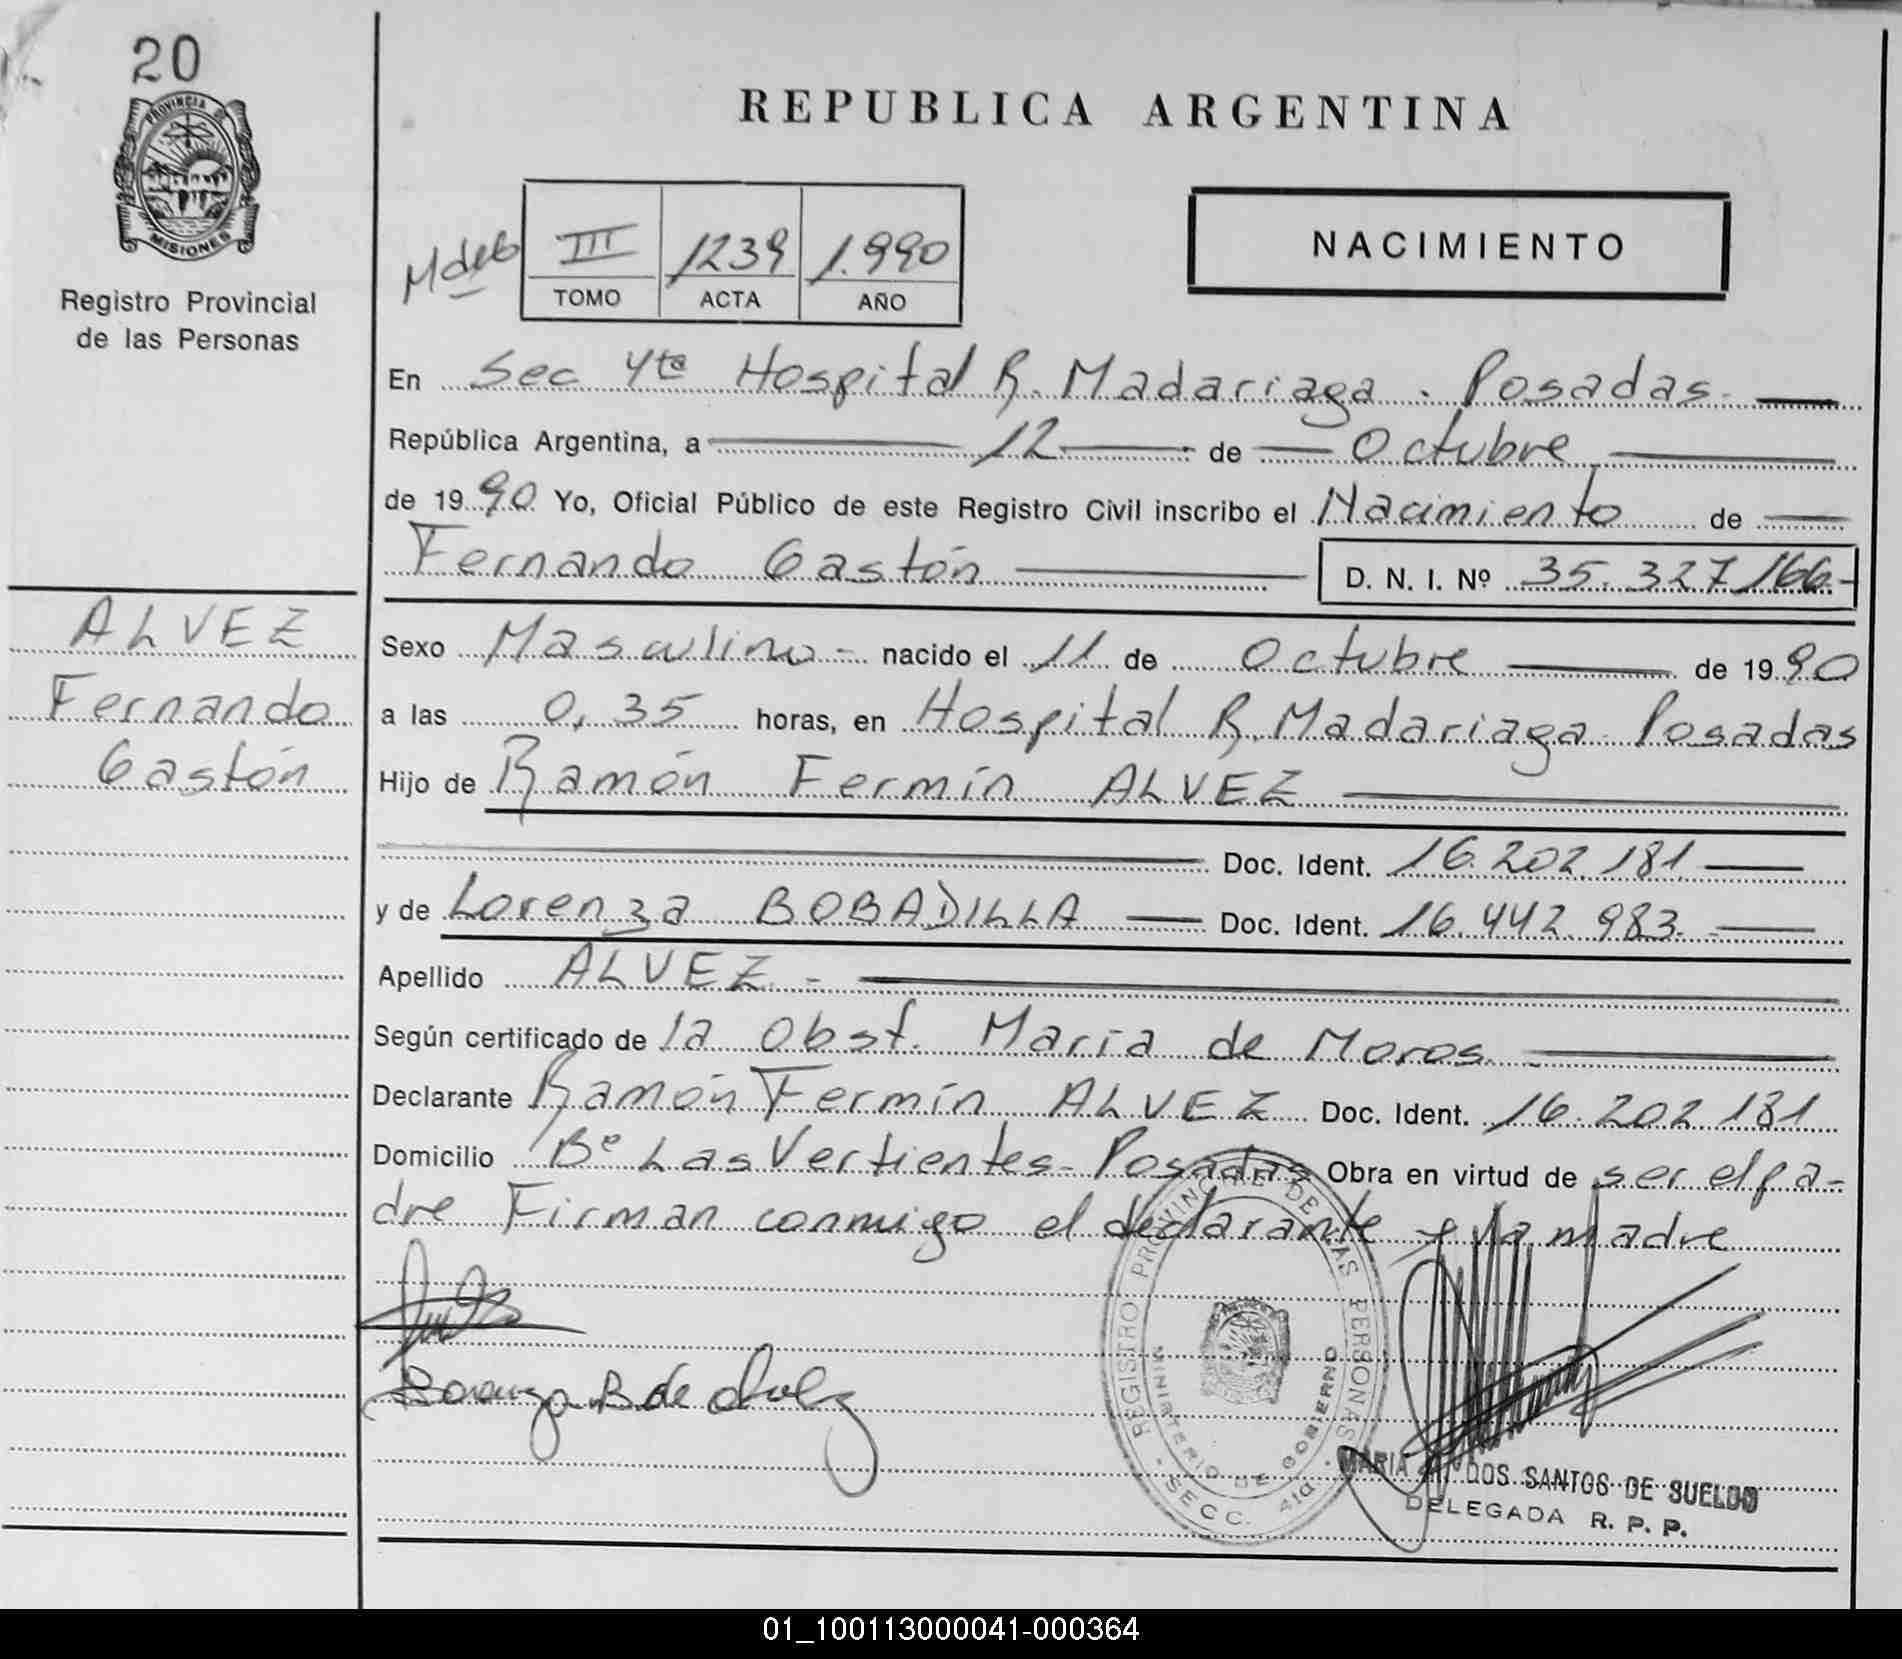 20
PROVINCIA DE
MISIONES
Registro Provincial
de las Personas
REPUBLICA ARGENTINA
III 1239 1.990
TOMO ACTA AÑO
NACIMIENTO
En Sec 4ta Hospital R. Madariaga . Posadas
República Argentina, a 12 de Octubre
de 1990 Yo, Oficial Público de este Registro Civil inscribo el Nacimiento de
Fernando Gastón D. N. I. Nº 35.327.166.-
ALVEZ
Fernando
Gastón
Sexo Masculino - nacido el 11 de Octubre de 1990
a las 0,35 horas, en Hospital R. Madariaga Posadas
Hijo de Ramón Fermín ALVEZ
Doc. Ident. 16.202.181
y de Lorenza BOBADILLA Doc. Ident. 16.442.983.
Apellido ALVEZ. -
Según certificado de la Obst. María de Moros.
Declarante Ramón Fermín ALVEZ Doc. Ident. 16.202.181
Domicilio Bº Las Vertientes - Posadas Obra en virtud de ser el pa-
dre Firman conmigo el declarante y la madre
REGISTRO PROVINCIAL DE LAS PERSONAS
MINISTERIO DE GOBIERNO
SECC. 4ta.
Lorenza B de Alvez
MARIA DOS SANTOS DE SUELDO
DELEGADA R. P. P.
01_100113000041-000364